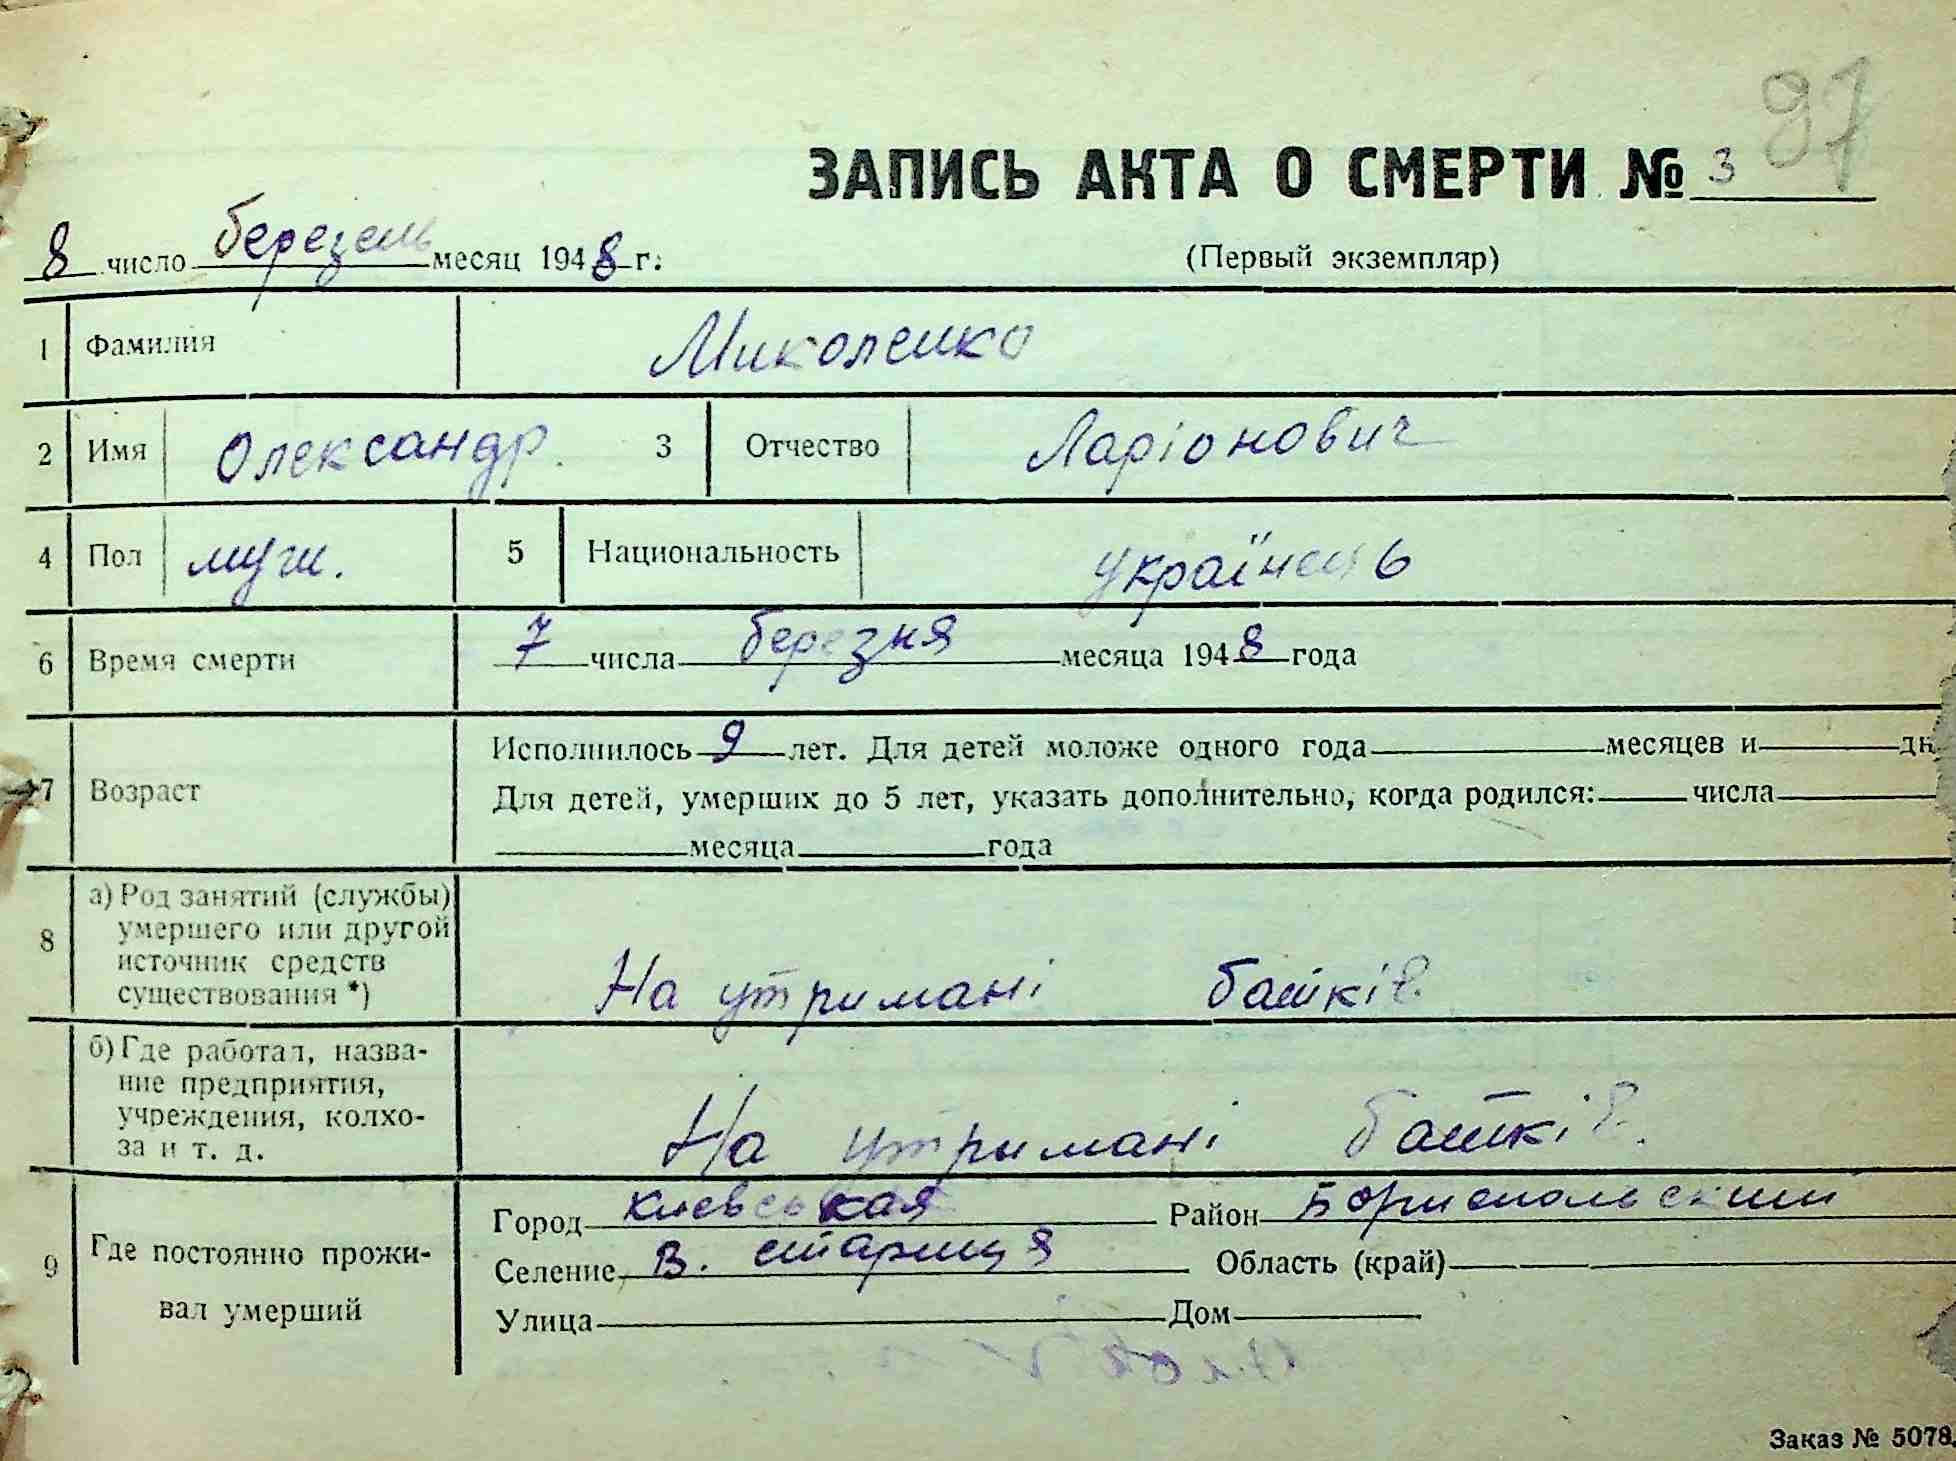 97
ЗАПИСЬ АКТА О СМЕРТИ № 3
8 число березень месяц 1948 г.
(Первый экземпляр)
1 Фамилия Миколенко
2 Имя Олександр 3 Отчество Ларіонович
4 Пол муж. 5 Национальность українець
6 Время смерти 7 числа березня месяца 1948 года
7 Возраст
Исполнилось 9 лет. Для детей моложе одного года месяцев и дн
Для детей, умерших до 5 лет, указать дополнительно, когда родился: числа
месяца года
8 а) Род занятий (службы)
умершего или другой
источник средств
существования *)
На утримані батьків.
б) Где работал, назва-
ние предприятия,
учреждения, колхо-
за и т. д.
На утримані батьків.
9 Где постоянно прожи-
вал умерший
Город Киевськая Район Бориспольский
Селение В. стариця Область (край)
Улица Дом
Заказ № 5078.